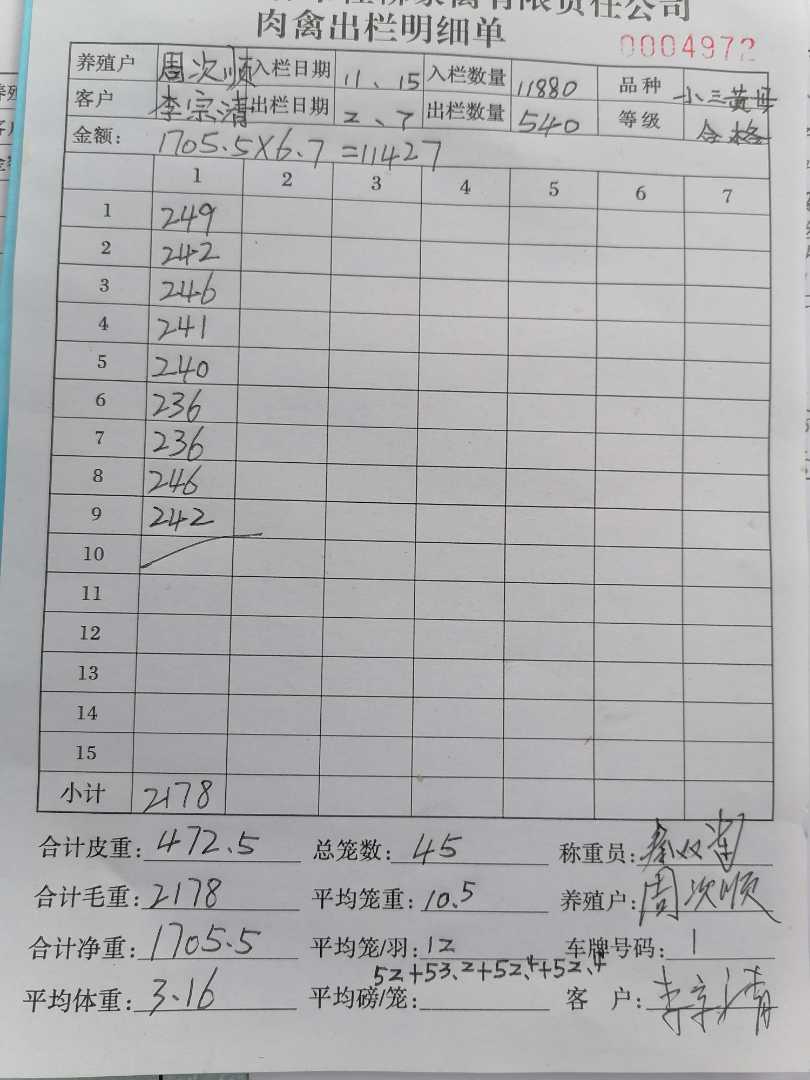 家禽有限责任公司
肉禽出栏明细单
0004972
养殖户 周次顺 入栏日期 11、15 入栏数量 11880 品种 小三黄母
客户 李宗清 出栏日期 2、7 出栏数量 540 等级 合格
金额: 1705.5×6.7=11427
1 2 3 4 5 6 7
1 249
2 242
3 246
4 241
5 240
6 236
7 236
8 246
9 242
10
11
12
13
14
15
小计 2178
合计皮重: 472.5 总笼数: 45 称重员:
合计毛重: 2178 平均笼重: 10.5 养殖户: 周次顺
合计净重: 1705.5 平均笼/羽: 12 车牌号码: 1
52+53.2+52.4+52.4
平均体重: 3.16 平均磅/笼: 客 户: 李宗清